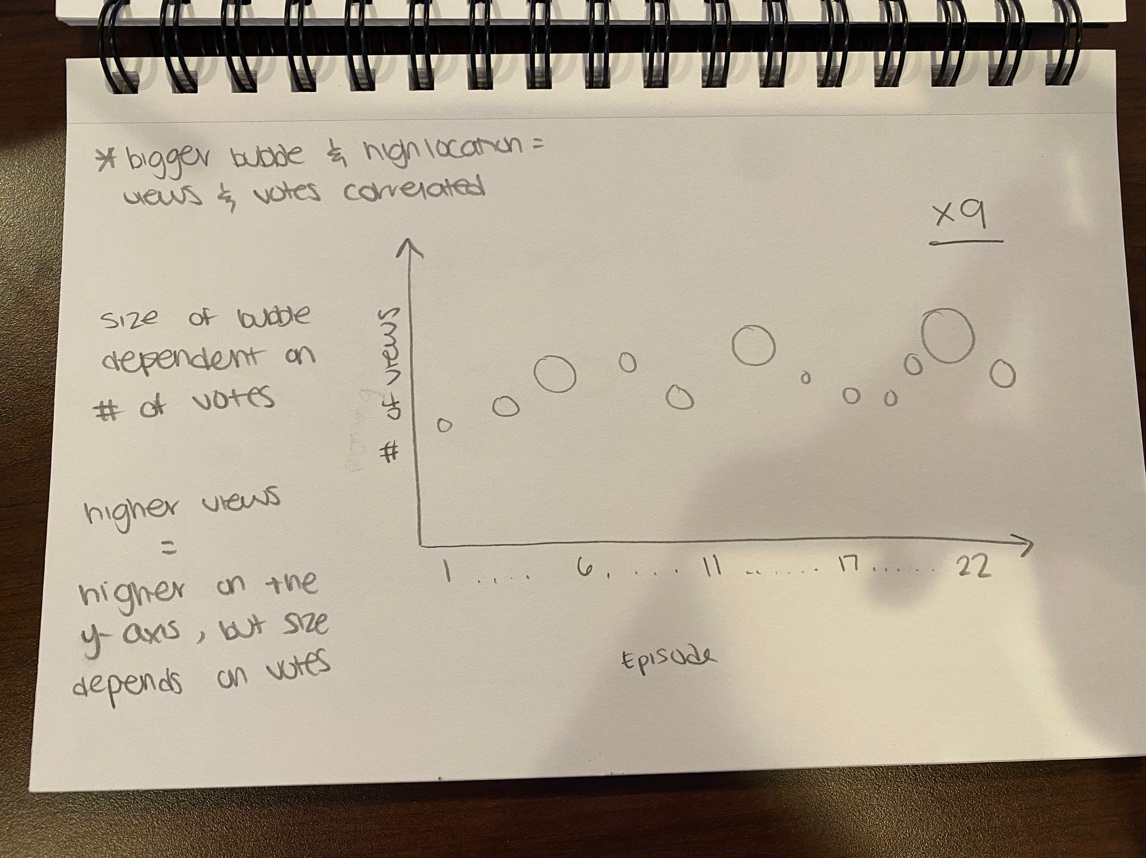 * bigger bubble & high location =
views & votes correlated
x9
size of bubble
dependent on
# of votes
# of views
higher views
=
higher on the
y-axis, but size
depends on votes
1 .... 6. .... 11 ........ 17 ...... 22
Episode